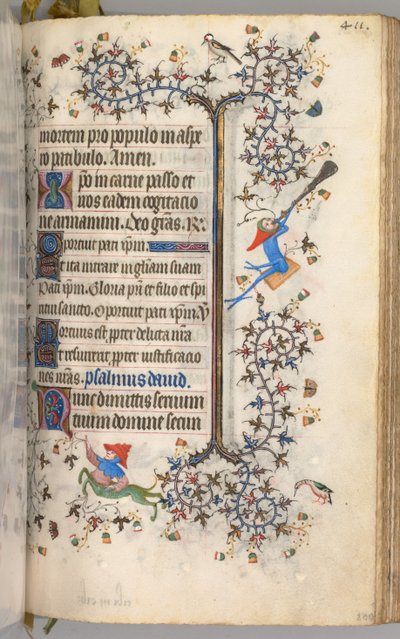 411.
mortem pro populo in aspe
ro patibulo. Amen.
xp̄o in carne passo et
nos eadem cogitacio
ne armamini. Deo grãs. R̃.
Oportuit pati xp̄m.
Et ita intrare in gl̃iam suam
Pati xp̄m. Gloria p̃ri et filio et spi
ritui sancto. Oportuit pati xp̄m. Ṽ
Mortuus est p̱pter delicta nr̃a
Et resurexit p̱pter iustificacio
nes nr̃as. psalmus david.
Nunc dimittis servum
tuum domine secun